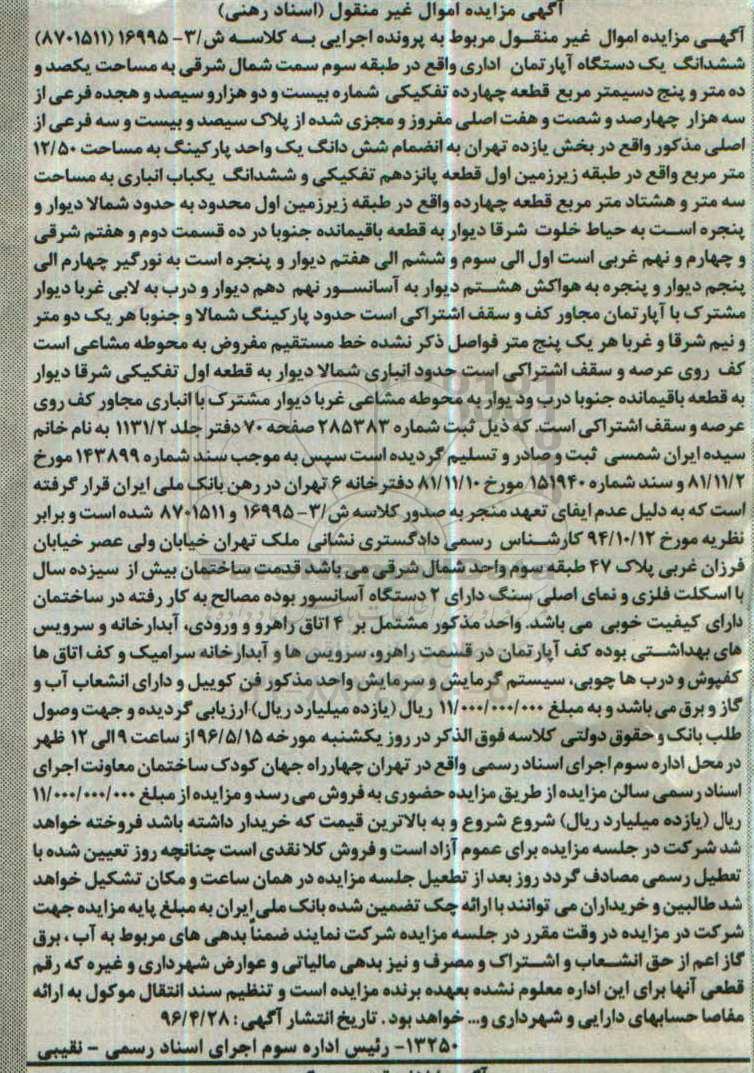 آگهی مزایده اموال غیر منقول (اسناد رهنی)
آگهـی مزایده اموال غیر منقـول مربوط به پرونده اجرایی بـه کلاسـه ش/۳- ۱۶۹۹۵ (۸۷۰۱۵۱۱)
ششدانگ یک دستگاه آپارتمان اداری واقع در طبقه سوم سمت شمال شرقی به مساحت یکصد و
ده متر و پنج دسیمتر مربع قطعه چهارده تفکیکی شماره بیست و دو هزارو سیصد و هجده فرعی از
سه هزار چهارصد و شصت و هفت اصلی مفروز و مجزی شده از پلاک سیصد و بیست و سه فرعی از
اصلی مذکور واقع در بخش یازده تهران به انضمام شش دانگ یک واحد پارکینگ به مساحت ۱۲/۵۰
متر مربع واقع در طبقه زیرزمین اول قطعه پانزدهم تفکیکی و ششدانگ یکباب انباری به مساحت
سه متر و هشتاد متر مربع قطعه چهارده واقع در طبقه زیرزمین اول محدود به حدود شمالا دیوار و
پنجره اسـت به حیاط خلوت شرقا دیوار به قطعه باقیمانده جنوبا در ده قسمت دوم و هفتم شرقی
و چهارم و نهم غربی است اول الی سوم و ششم الی هفتم دیوار و پنجره است به نورگیر چهارم الی
پنجم دیوار و پنجره به هواکش هشـتم دیوار به آسانسـور نهم دهم دیوار و درب به لابی غربا دیوار
مشترک با آپارتمان مجاور کف و سقف اشتراکی است حدود پارکینگ شمالا و جنوبا هر یک دو متر
و نیم شرقا و غربا هر یک پنج متر فواصل ذکر نشده خط مستقیم مفروض به محوطه مشاعی است
کف روی عرصه و سقف اشتراکی است حدود انباری شمالا دیوار به قطعه اول تفکیکی شرقا دیوار
به قطعه باقیمانده جنوبا درب ودیوار به محوطه مشاعی غربا دیوار مشترک با انباری مجاور کف روی
عرصه و سقف اشتراکی است. که ذیل ثبت شماره ۲۸۵۳۸۳ صفحه ۷۰ دفتر جلد ۱۱۳۱/۲ به نام خانم
سیده ایران شمسی ثبت و صادر و تسلیم گردیده است سپس به موجب سند شماره ۱۴۳۸۹۹ مورخ
۸۱/۱۱/۲ و سند شماره ۱۵۱۹۴۰ مورخ ۸۱/۱۱/۱۰ دفترخانه ۶ تهران در رهن بانک ملی ایران قرار گرفته
است که به دلیل عدم ایفای تعهد منجر به صدور کلاسه ش/۳- ۱۶۹۹۵ و ۸۷۰۱۵۱۱ شده است و برابر
نظریه مورخ ۹۴/۱۰/۱۲ کارشـناس رسمی دادگستری نشانی ملک تهران خیابان ولی عصر خیابان
فرزان غربی پلاک ۴۷ طبقه سوم واحد شمال شرقی می باشد قدمت ساختمان بیش از سیزده سال
با اسکلت فلزی و نمای اصلی سنگ دارای ۲ دستگاه آسانسور بوده مصالح به کار رفته در ساختمان
دارای کیفیت خوبی می باشد. واحد مذکور مشتمل بر ۴ اتاق راهرو و ورودی، آبدارخانه و سرویس
های بهداشـتی بوده کف آپارتمان در قسمت راهرو، سرویس ها و آبدارخانه سرامیک و کف اتاق ها
کفپوش و درب ها چوبی، سیستم گرمایش و سرمایش واحد مذکور فن کوییل و دارای انشعاب آب و
گاز و برق می باشد و به مبلغ ۱۱/۰۰۰/۰۰۰/۰۰۰ ریال (یازده میلیارد ریال) ارزیابی گردیده و جهت وصول
طلب بانک و حقوق دولتی کلاسه فوق الذکر در روز یکشنبه مورخه ۹۶/۵/۱۵ از ساعت ۹ الی ۱۲ ظهر
در محل اداره سوم اجرای اسناد رسمی واقع در تهران چهارراه جهان کودک ساختمان معاونت اجرای
اسناد رسمی سالن مزایده از طریق مزایده حضوری به فروش می رسد و مزایده از مبلغ ۱۱/۰۰۰/۰۰۰/۰۰۰
ریال (یازده میلیارد ریال) شروع شروع و به بالاترین قیمت که خریدار داشته باشد فروخته خواهد
شد شرکت در جلسه مزایده برای عموم آزاد است و فروش کلا نقدی است چنانچه روز تعیین شده با
تعطیل رسمی مصادف گردد روز بعد از تطعیل جلسه مزایده در همان ساعت و مکان تشکیل خواهد
شد طالبین و خریداران می توانند با ارائه چک تضمین شده بانک ملی ایران به مبلغ پایه مزایده جهت
شرکت در مزایده در وقت مقرر در جلسه مزایده شرکت نمایند ضمناً بدهی های مربوط به آب ، برق
گاز اعم از حق انشـعاب و اشـتراک و مصرف و نیز بدهی مالیاتی و عوارض شهرداری و غیره که رقم
قطعی آنها برای این اداره معلوم نشده بعهده برنده مزایده است و تنظیم سند انتقال موکول به ارائه
مفاصا حسابهای دارایی و شهرداری و... خواهد بود . تاریخ انتشار آگهی : ۹۶/۴/۲۸
۱۳۲۵۰- رئیس اداره سوم اجرای اسناد رسمی - نقیبی